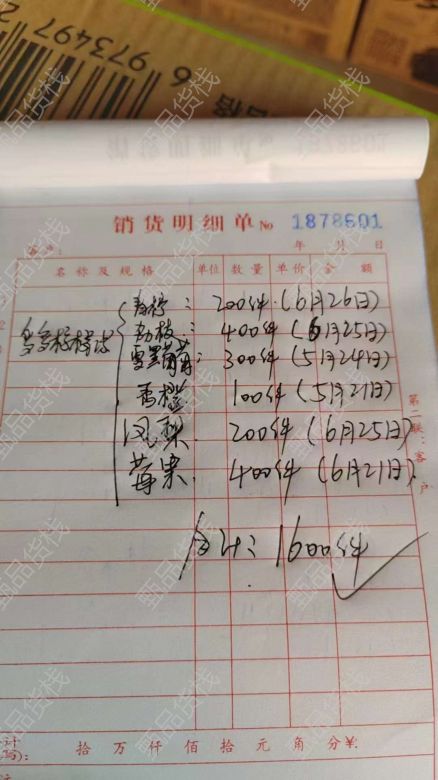 6 973497 2
销货明细单 No 1878601
客户: 年 月 日
名称及规格 单位 数量 单价 金额
200件 (6月26日)
400件 (6月25日)
300件 (5月24日)
香橙 100件 (5月21日)
凤梨 200件 (6月25日)
莓果 400件 (6月21日)
合计: 1600件
第二联:客户
拾万仟佰拾元角分¥:
甄品货栈